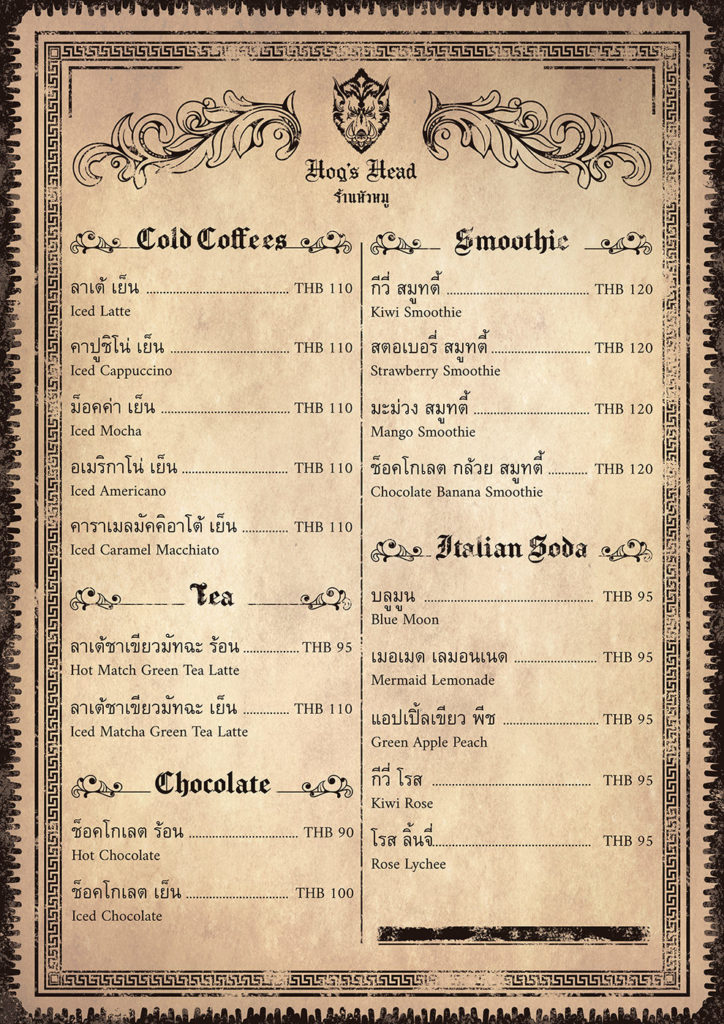 Hog's Head
ร้านหัวหมู
Cold Coffees
ลาเต้ เย็น ........................ THB 110
Iced Latte
คาปูชิโน่ เย็น ........................ THB 110
Iced Cappuccino
ม็อคค่า เย็น ........................ THB 110
Iced Mocha
อเมริกาโน่ เย็น ........................ THB 110
Iced Americano
คาราเมลมัคคิอาโต้ เย็น ............. THB 110
Iced Caramel Macchiato
Tea
ลาเต้ชาเขียวมัทฉะ ร้อน ............... THB 95
Hot Match Green Tea Latte
ลาเต้ชาเขียวมัทฉะ เย็น ............. THB 110
Iced Matcha Green Tea Latte
Chocolate
ช็อคโกเลต ร้อน ........................ THB 90
Hot Chocolate
ช็อคโกเลต เย็น ........................ THB 100
Iced Chocolate
Smoothie
กีวี่ สมูทตี้ ........................ THB 120
Kiwi Smoothie
สตอเบอรี่ สมูทตี้ ........................ THB 120
Strawberry Smoothie
มะม่วง สมูทตี้ ........................ THB 120
Mango Smoothie
ช็อคโกเลต กล้วย สมูทตี้ ........... THB 120
Chocolate Banana Smoothie
Italian Soda
บลูมูน ........................ THB 95
Blue Moon
เมอเมด เลมอนเนด ........................ THB 95
Mermaid Lemonade
แอปเปิ้ลเขียว พีช ........................ THB 95
Green Apple Peach
กีวี่ โรส ........................ THB 95
Kiwi Rose
โรส ลิ้นจี่ ........................ THB 95
Rose Lychee